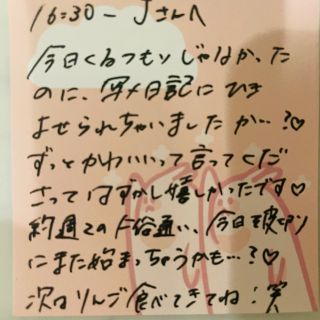 16:30〜Jさんへ
今日くるつもりじゃなかった
のに、写メ日記にひき
よせられちゃいましたか…?♡
ずっとかわいいって言ってくだ
さってはずかし嬉しかったです♡
約週2の 通い、今日を皮切り
にまた始まっちゃうかも…?♡
次はりんご食べてきてね!笑